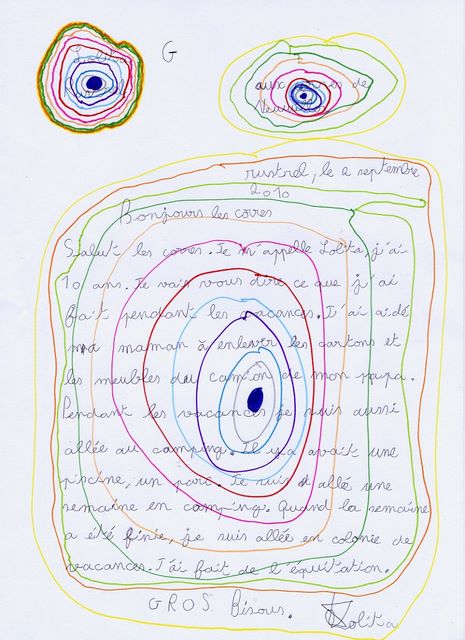 Lolita
G
aux corres de
rustrel, le 2 septembre
2010
Bonjours les corres
Salut les corres. Je m'appelle Lolita, j'ai
10 ans. Je vais vous dire ce que j'ai
fait pendant les vacances. J'ai aidé
ma maman à enlever les cartons et
les meubles du camion de mon papa.
Pendant les vacances je suis aussi
allée au camping. Il y a avait une
piscine, un parc. Je suis allé une
semaine en camping. Quand la semaine
a été finie, je suis allée en colonie de
vacances. J'ai fait de l'équitation.
GROS Bisous. Lolita